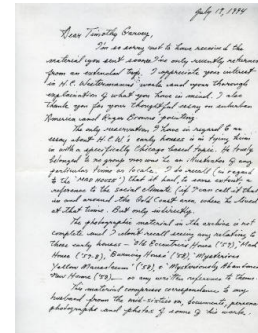 July 18, 1994
Dear Timothy Garvey,
I'm so sorry not to have received the
material you sent sooner. I've only recently returned
from an extended trip. I appreciate your interest
in H.C. Westermann's work and your thorough
explanation of what you have in mind. I also
thank you for your thoughtful essay on suburban
America and Roger Brown's painting.
The only reservation I have in regard to an
essay about H.C.W.'s early houses is in tying him
in with a specifically Chicago based type. He truly
belonged to no group nor was he an illustrator of any
particular time or locale. I do recall (in regard
to the "MAD HOUSE") that it had to some extent a
reference to the social climate (if I can call it that)
in and around the Gold Coast area where he lived
at that time. But only indirectly.
The photographic material in the archive is not
complete and I don't recall seeing any relating to
those early houses - Old Eccentric House ('5 ), Mad
House ('58), Burning House ('58), "Mysterious
Yellow Mausoleum" ('58) or "Mysteriously Abandoned
New Home" ('58) - or any written reference to them.
This material comprises correspondence to my
husband from the mid-sixties on, documents, personal
photographs and photos of some of his works.